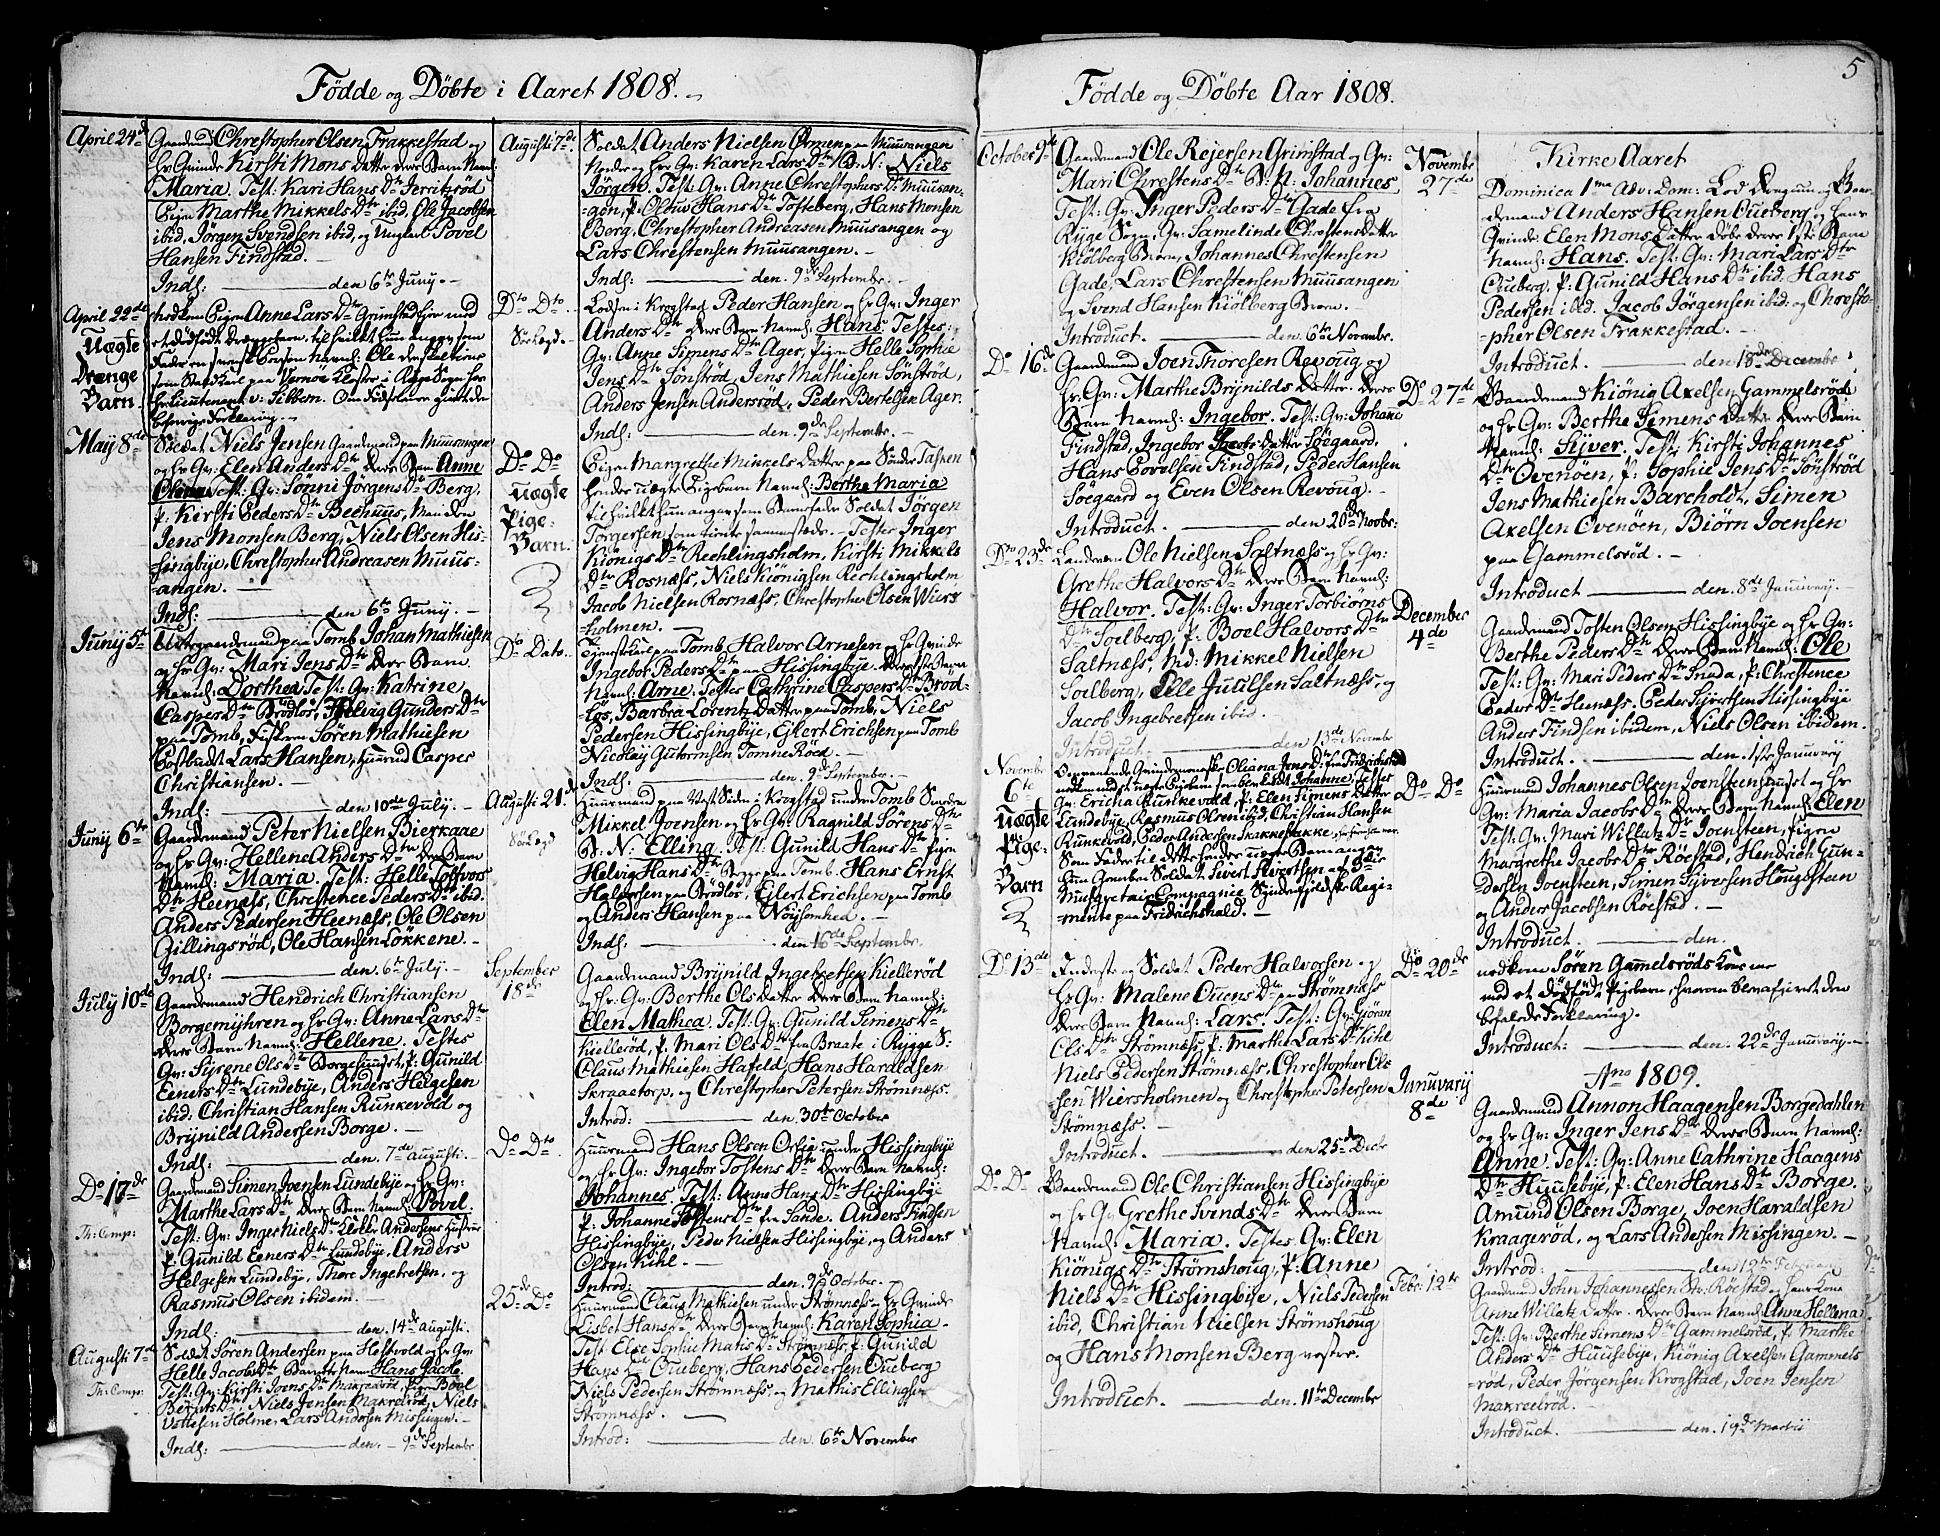 Födde og Döbte i Aaret 1808.
April 24de
Gaardmand Chrestopher Olsen Frakkestad og
hr Qvinde Kirsti Mons Datter deres Barn Navnl:
Maria. Test: Kari Hans Dtr Ferritzröd
Pigen Marthe Mikkels Dtr ibid, Ole Jacobsen
ibid, Jörgen Svendsen ibid, og Ungkarl Povel
Hansen Findstad.
Indl: den 6te Junij.
April 22de
Uægte
Drænge
Barn.
Pigen Anne Lars Dtr Grimstad
som Fader en svensk Person Navnl: Ole
paa Vernöe Kloster i Rygge Sogn
May 8de
Soldat Niels Jensen Gaardmand paa Muusangen
og hr Qv: Elen Anders Dtr deres Barn Anne
Olena. Test: Qv: Sönni Jörgens Dtr Berg,
P: Kirsti Peders Dtr Bechuus, Manden
Jens Monsen Berg, Niels Olsen His-
singbye, Chrestopher Andreasen Muus-
angen.
Indl: den 6te Junij.
Junij 5te
paa Tomb Johan Mathiesen
og hr Qv: Mari Jens Dtr Deres Barn
Navnl: Dorthea Test: Qv: Katrine
Caspers Dtr Brödlös, Helvig Gunders Dtr
paa Tomb, Fisker Sören Mathiesen
Postbudt Lars Hansen, Huusmd Casper
Christiansen.
Indl: den 10de July.
Junij 6te
Gaardemand Peter Nielsen Bierkaae
og hr Qv: Hellene Anders Dtr Deres Barn
Navnl: Maria. Test: Helle Tollvors
Dtr Heenæss, Chrestence Peders Dtr ibid.
Anders Pedersen Heenæss, Ole Olsen
Gillingsröd, Ole Hansen Lökkene.
Indl: den 6te July.
July 10de
Gaardemand Hendrich Christiansen
Borgemyhren og hr Qv: Anne Lars Dtr
deres Barn Navnl: Hellene. Testes
Qv: Syrene Ols Dtr Borgesundet, P: Gunild
Eeners Dtr Lundebye, Anders Helgesen
ibid, Christian Hansen Runkevold og
Brynild Andersen Borge.
Indl: den 7de Augusti.
Do 17de
Th: Comp:
Gaardemand Simen Joensen Lundebye og hr Qv:
Marthe Lars Dtr, deres Barn Navnl: Povel.
Test: Qv: Inger Niels Dtr, Andersens Hustrue
P: Gunild Eeners Dtr Lundebye, Anders
Helgesen Lundebye, Thore Ingebretsen, og
Rasmus Olsen ibidem.
Indl: den 14de Augusti.
Augusti 7de
Th: Comp:
Soldat Sören Andersen paa Hestvold og hr Qv:
Helle Jacobs Dtr Hans Jacob
Test: Qv: Kirsti Joens Dtr Makreröd, Pigen Boel
Bernts Dtr, Niels Jensen Makrelröd, Niels
Holme, Lars Andersen Missingen.
Indl: den 9de Septembr
Augusti 7de.
Soldat Anders Nielsen Örmen paa Muusangen
Nordre og hr Qv: Karen Lars Dtr B: N: Niels
Jörgen. Test: Qv: Anne Chrestophers Dtr Muusan-
gen, P: Oluv Hans Dtr Tofteberg, Hans Monsen
Berg, Chrestopher Andreasen Muusangen og
Lars Chrestensen Muusangen.
Indl: den 9de Septembr.
Dto Dto
Lodsen i Krogstad Peder Hansen og hr Qv: Inger
Anders Dtr deres Barn Navnl: Hans. Testes
Qv: Anne Simens Dtr Ager, Pigen Helle Sophie
Jens Dtr Sönströd, Jens Mathiesen Sönströd,
Anders Jensen Andersröd, Peder Bertelsen Ager.
Indl: den 9de Septembr.
Do Do
Uægte
Pige-
Barn.
Pigen Margrethe Mikkels Datter paa Söndre Tasken
hendes uægte Pigebarn Navnl: Berthe Maria
til hvilket hun angav som Barnefader Soldat Jörgen
Torgersen som tiente sammestæds. Testes Inger
Kiönigs Dtr Rechlingsholm, Kirsti Mikkels
Dtr Rosnæss, Niels Kiönigsen Rechlingsholm
Jacob Nielsen Rosnæss, Chrestopher Olsen Wiers
holmen.
Do Dato.
Tienestkarl paa Tomb Halvor Arnesen og hr Qvinde
Ingebor Peders Dtr paa Hissingbye. Deres 1ste Barn
Navnl: Arne. Testes Cathrine Caspers Dtr Bröd-
lös, Barbra Lorentz Datter paa Tomb, Niels
Pedersen Hissingbye, Eilert Erichsen paa Tomb
Nicolay Gutormsen Tomne Röed.
Indl: den 9de Septembr.
Augusti 21de
Huusmand paa Vest Siden i Krogstad under Tomb Smeden
Mikkel Joensen og hr Qv: Ragnild Sörens Dtr
B: N: Elling. Test: Gunild Hans Dtr Pigen
Helvig Hans Dtr Begge paa Tomb. Hans Ernst
Halvorsen paa Brödlös, Eilert Erichsen paa Tomb
og Anders Hansen paa Nöysomhed.
Indl: den 16de Septembr.
September
18de
Gaardemand Brynild Ingebretsen Kielleröd
og hr Qv: Berthe Ols Datter Deres Barn Navnl:
Elen Mathea. Test: Qv: Gunild Simens Dtr
Kielleröd, P: Mari Ols Dtr fra Braate i Rygge S:
Claus Mathiesen Hafeld, Hans Haraldsen
Skraatorp, og Chrestopher Petersen Strömnæss.
Introd: den 30te October
Do Dto
Huusmand Hans Olsen under Hissingbye
og hr Qv: Ingebor Tostens Dtr Deres Barn Navnl:
Johannes. Test: Anne Hans Dtr Hissingbye
P: Johanne Tostens Dtr fra Sande. Anders Findsen
Hissingbye, Peder Nielsen Hissingbye, og Anders
Olsen Kihl.
Introd: den 9de October.
25de Do
Huusmand Claus Mathiesen under Strömnæss og hr Qvinde
Lisbet Hans Dtr deres Barn Navnl: Karen Sophia.
Test Else Sophie Matis Dtr Strömnæss, P: Gunild
Hans Dtr Oueberg, Hans Pedersen Oueberg
Niels Pedersen Strömnæss, og Mathis Ellingsen
Strömnæss.
Introd: den 6te November
Födde og Döbte Aar 1808.
5
October 9de
Gaardemand Ole Rejersen Grimstad og Qv:
Mari Chrestens Dtr B: N: Johannes
Test: Qv: Inger Peders Dtr Gade fra
Rygge Sogn, Qv: Samelinde Chrestens Datter
Kiölberg Barn, Johannes Chrestensen
Gade, Lars Chrestensen Muusangen
og Svend Hansen Kiölberg Barn.
Introduct. den 6te Novembr.
Do 16de
Gaardemand Joen Thoresen Revoug og
hr Qv: Marthe Brynilds Datter. Deres
Barn Navnl: Ingebor. Test: Qv: Johane
Findstad, Ingebor Jacobs Datter Söegaard,
Hans Povelsen Findstad, Peder Hansen
Söegaard og Even Olsen Revoug.
Introduct. den 20de Novbr:
Do 23de
Landværn Ole Nielsen Saltnæss og hr Qv:
Grethe Halvors Dtr deres Barn Navnl:
Halvor. Test: Qv: Inger Torbiörns
Dtr Soelberg, P: Boel Halvors Dtr
Saltnæss, Md: Mikkel Nielsen
Soelberg, Elle Juulsen Saltnæss, og
Jacob Ingebretsen ibid.
Introduct. den 13de Novembr
November
6te
Uægte
Pige-
Barn
Oliana Jens Dtr fra Fridrichstad
Johanne, Testes
Qv: Ericha Runkevold, P: Elen Simens Datter
Lundebye, Rasmus Olsen ibid, Christian Hansen
Runkevold, Peder Andersen Skakkestakke,
Som Fader til dette hendes uægte Barn angav
hun Soldat Sivert Sivertsen af
Musqvetair Compagnie Söndenfieldske Regi-
mente paa Fridrichshald.
Do 13de
Inderste og Soldat Peder Halvorsen og
hr Qv: Malene Ouens Dtr paa Strömnæss
deres Barn Navnl: Lars. Test: Qv: Gjöran
Ols Dtr Strömnæss, P: Marthe Lars Dtr Kihl
Niels Pedersen Strömnæss, Chrestopher Ol-
sen Wiersholmen og Chrestopher Petersen
Strömnæss.
Introduct. den 25de Decbr
Do Do
Gaardemand Ole Christiansen Hissingbye
og hr Qv: Grethe Svends Dtr Deres Barn
Navnl: Maria. Testes Qv: Elen
Kiönigs Dtr Strömshoug, P: Anne
Niels Dtr Hissingbye, Niels Pedersen
ibid, Christian Nielsen Strömshoug
og Hans Monsen Berg vester.
Introduct. den 11te Decembr
Novembr
27de
Kirke Aaret
Dominica 1ma Adv: Dom: Lod Gaar-
demand Anders Hansen Oueberg og hans
Qvinde Elen Mons Datter döbe deres 1ste Barn
Navnl: Hans. Test: Qv: Mari Lars Dtr
Oueberg, P: Gunild Hans Dtr ibid, Hans
Pedersen ibid. Jacob Jörgensen ibid. og Chresto-
pher Olsen Frakkestad.
Introduct. den 18de Decembr
Do 27de
Gaardemand Kiönig Axelsen Gammelsröd
og hr Qv: Berthe Simens Datter Deres Barn
Navnl: Syver. Test: Kirsti Johannes
Dtr Ovenöen, P: Sophie Jens Dtr Sönströd
Jens Mathiesen Barcholdt, Simen
Axelsen Ovenöen, Biörn Joensen
paa Gammelsröd.
Introduct den 8de Januarij.
December
4de
Gaardemand Tosten Olsen Hissingbye og hr Qv:
Berthe Peders Dtr deres Barn Navnl: Ole
Test: Qv: Mari Peders Dtr Snada, P: Chrestence
Peders Dtr Heenæss. Peder Syvertsen Hissingbye
Anders Findsen ibidem, Niels Olsen ibidem.
Introduct. den 1ste Januarij
Do Do
Huusmand Johannes Olsen Joensteenhuuset og hr
Qv: Maria Jacobs Dtr Deres Barn Navnl: Elen
Test: Qv: Mari Willatz Dtr Joensteen, Pigen
Margrethe Jacobs Dtr Röestad, Hendrich Gun-
dersen Joensteen, Simen Syversen Haugsteen
og Anders Jacobsen Röestad.
Introduct. den.
Do 20de
nedkom Sören Gamelsröds Kone
med et dödfödt Pigebarn, hvorom blev afgivet den
befalede Forklaring.
Introduct: den 22de Januarij.
Ano 1809.
Januarij
8de
Gaardemand Annon Haagensen Borgedahlen
og hr Qv: Inger Jens Dtr deres Barn Navnl:
Anne. Test: Qv: Anne Cathrine Haagens
Dtr Huusebye, P: Elen Hans Dtr Borge.
Amund Olsen Borge, Joen Haraldsen
Kraageröd, og Lars Andersen Missingen.
Introd: den 12te Februarij
Febr: 12te
Gaardmand John Johannessen Str: Röestad og hans Kone
Anne Willatz Datter. deres Barn Navnl: Anne Hellena
Test: Qv: Berthe Simens Dtr Gammelsröd, P: Marthe
Anders Dtr Huusebye, Kiönig Axelsen Gammels
röd, Peder Jörgensen Krogstad, Joen Jensen
Makreelröd.
Introduct. den 19de Martii